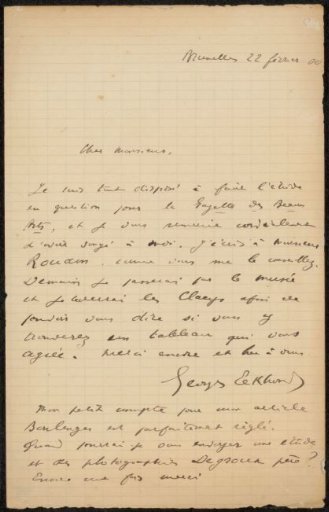 Bruxelles 22 février 00
Cher monsieur,
Je suis tout disposé à faire l'étude
en question pour la Gazette des Beaux
Arts, et je vous remercie cordialement
d'avoir songé à moi. J'écris à monsieur
comme vous me le conseillez.
Demain je passerai par le musée
et je verrai les Claeys afin de
pouvoir vous dire si vous y
trouverez un tableau qui vous
agrée. Merci encore et bien à vous
Georges Eekhoud
Mon petit compte pour mon article
Boulenger est parfaitement réglé.
Quand pourrai-je vous envoyer une étude
et des photographies Degroux père?
Encore une fois merci